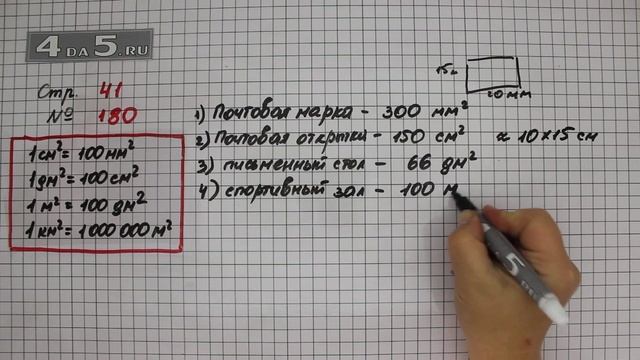 4 DA 5.RU
Стр. 41
№ 180
1 см² = 100 мм²
1 дм² = 100 см²
1 м² = 100 дм²
1 км² = 1 000 000 м²
15м
20 мм
1) Почтовая марка - 300 мм²
2) Почтовая открытка - 150 см² ≈ 10 × 15 см
3) письменный стол - 66 дм²
4) спортивный зал - 100 м
5